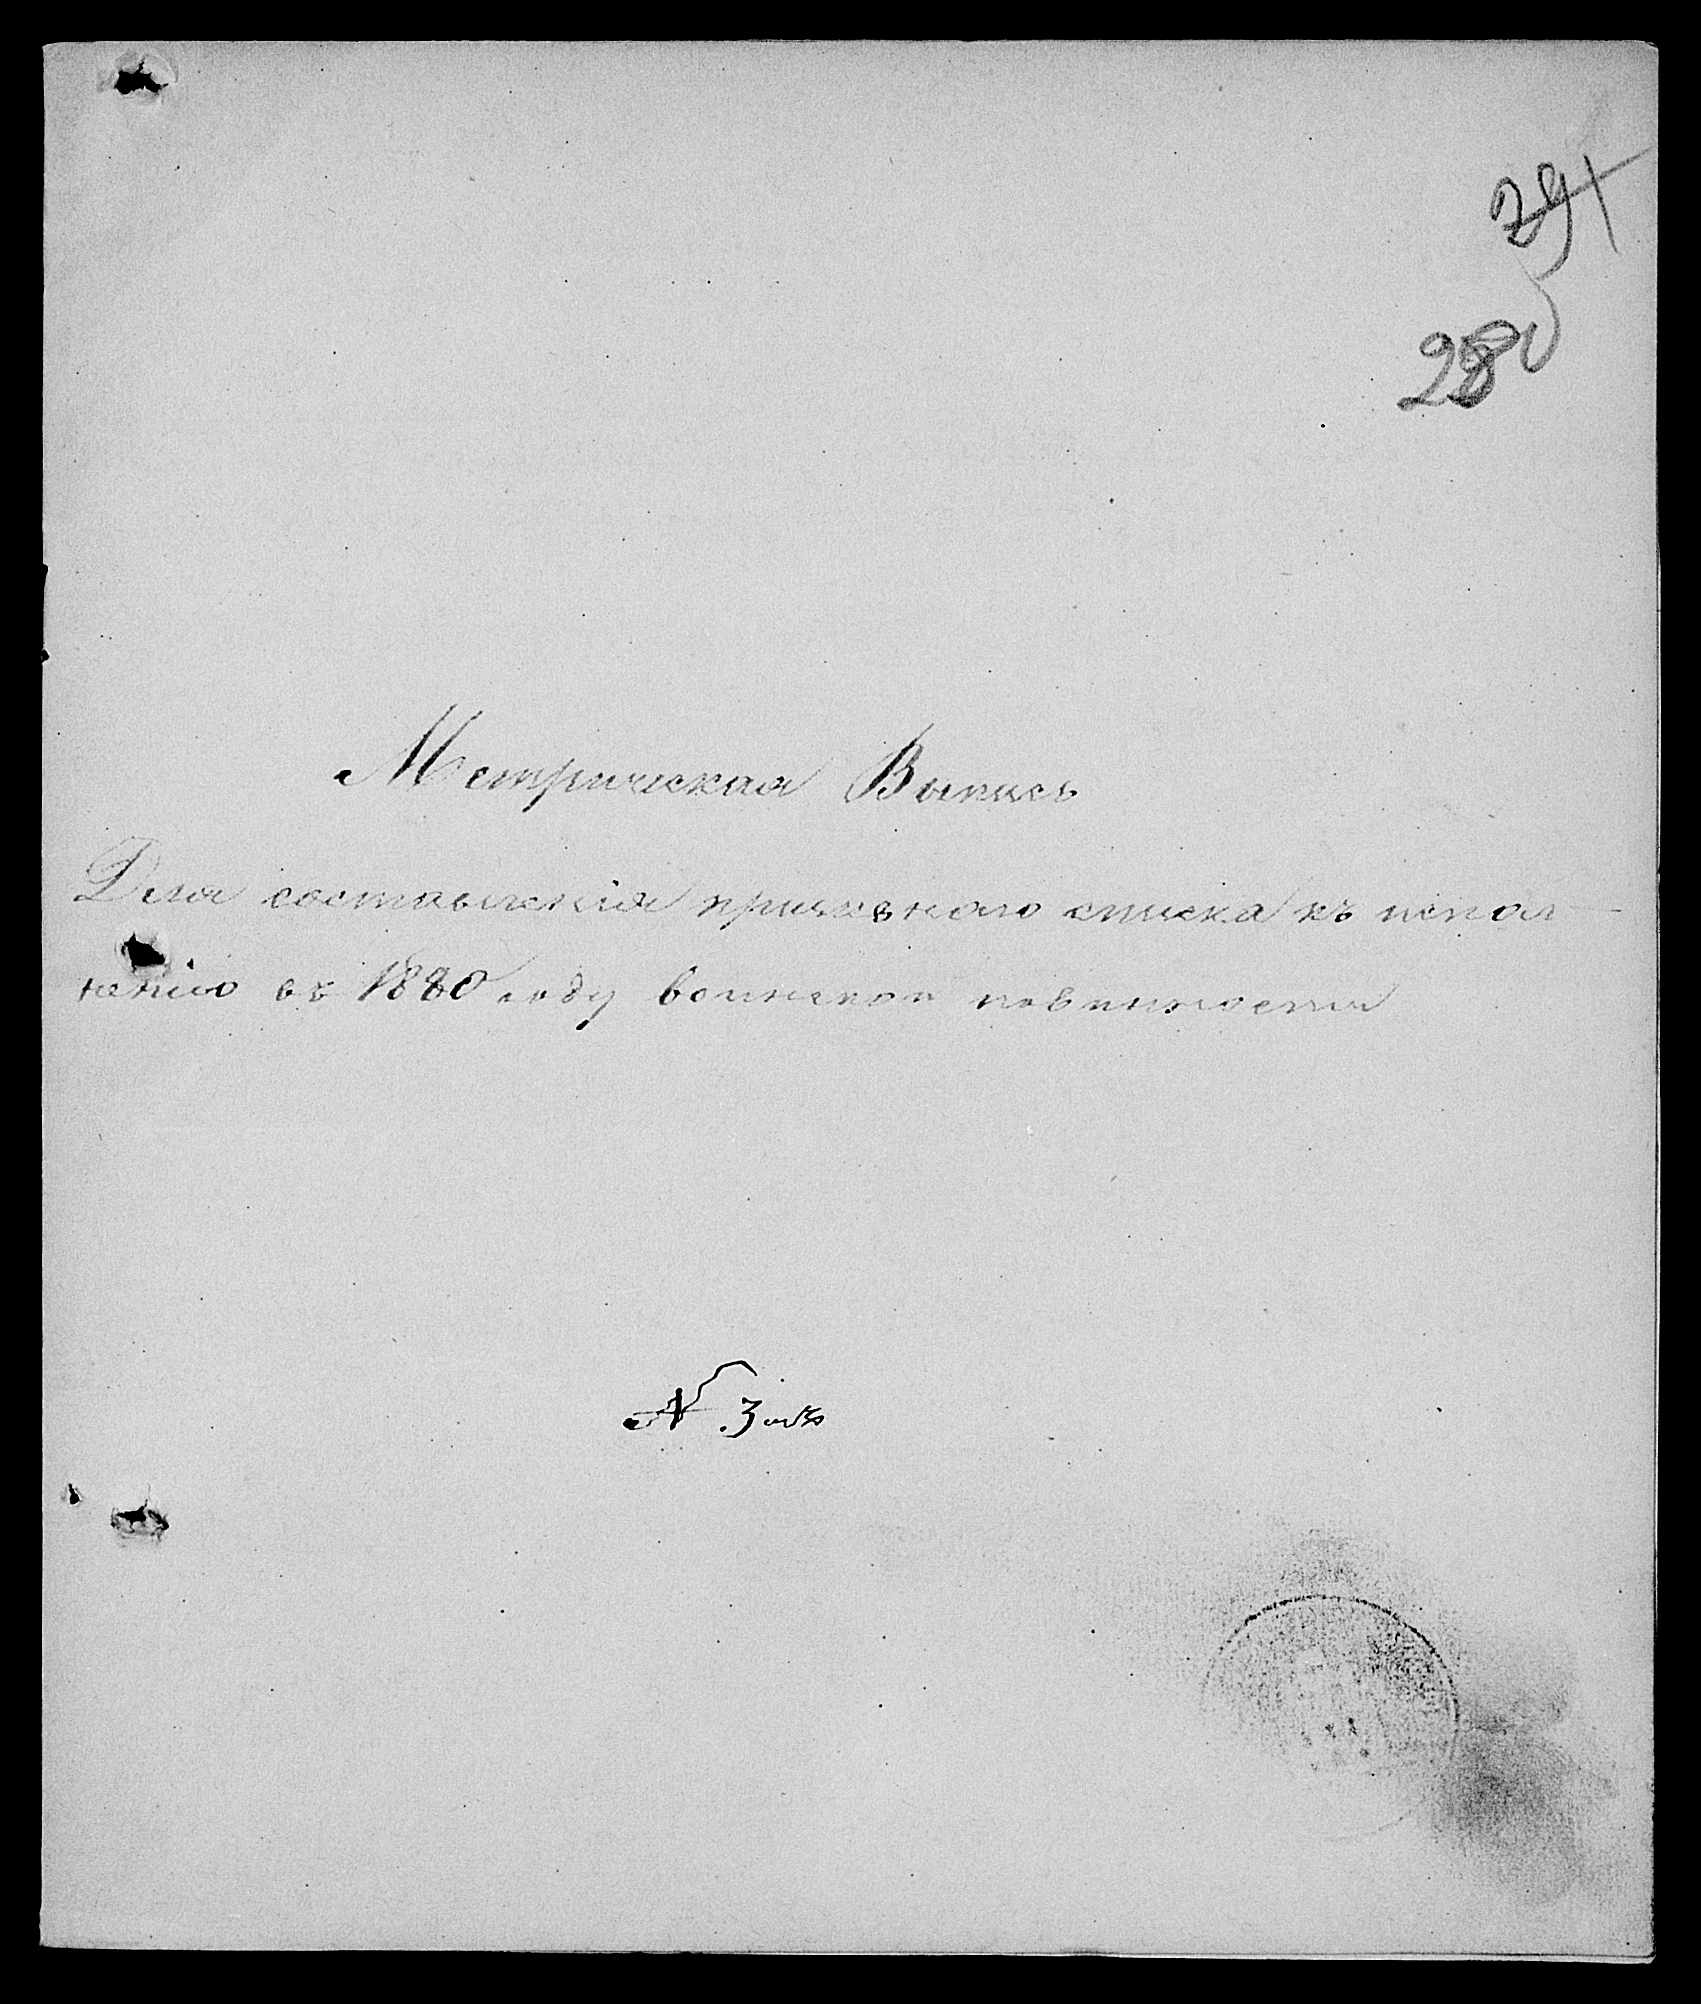 291
280
Метрическая Выпись
Для составленія призывнаго списка къ испол-
ненію въ 1880 году воинской повинности
N 3